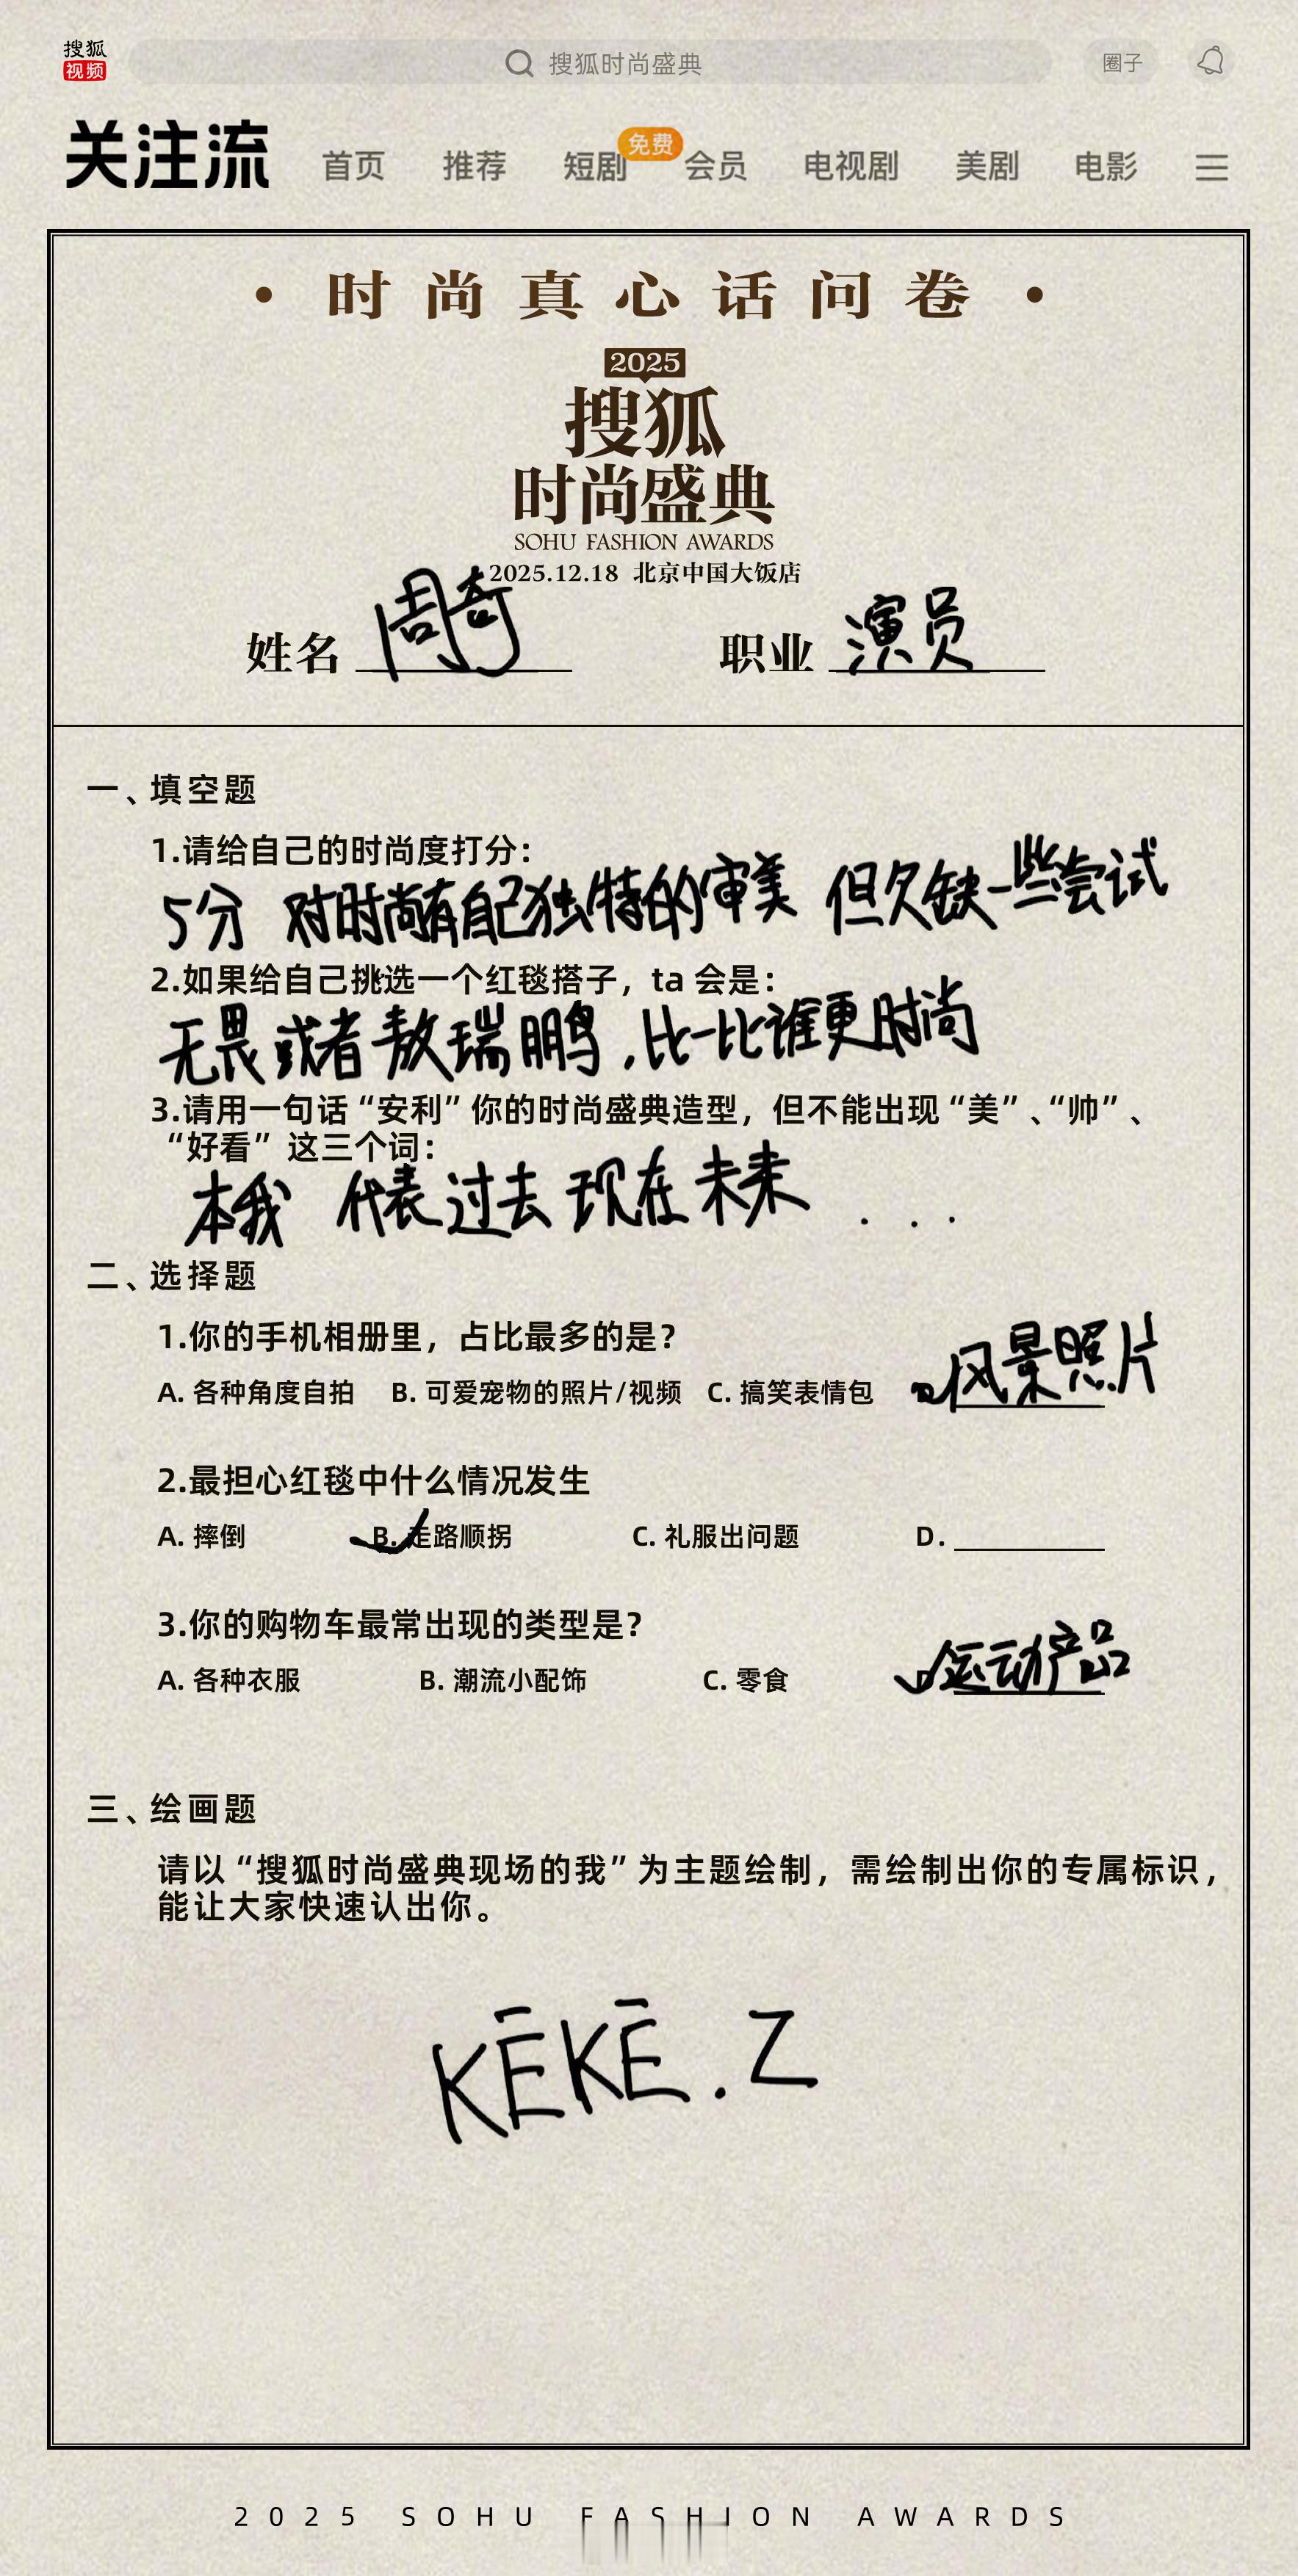 搜狐
视频
搜狐时尚盛典
圈子
关注流 首页 推荐 短剧 免费 会员 电视剧 美剧 电影
• 时尚真心话问卷 •
2025
搜狐
时尚盛典
SOHU FASHION AWARDS
2025.12.18 北京中国大饭店
姓名 周奇 职业 演员
一、填空题
1.请给自己的时尚度打分：
5分 对时尚有自己独特的审美 但欠缺一些尝试
2.如果给自己挑选一个红毯搭子，ta 会是：
无畏或者敖瑞鹏，比一比谁更时尚
3.请用一句话“安利”你的时尚盛典造型，但不能出现“美”、“帅”、
“好看”这三个词：
本我 代表过去现在未来 . . .
二、选择题
1.你的手机相册里，占比最多的是？
A. 各种角度自拍 B. 可爱宠物的照片/视频 C. 搞笑表情包 D. 风景照片
2.最担心红毯中什么情况发生
A. 摔倒 B. 走路顺拐 C. 礼服出问题 D.
3.你的购物车最常出现的类型是？
A. 各种衣服 B. 潮流小配饰 C. 零食 D. 运动产品
三、绘画题
请以“搜狐时尚盛典现场的我”为主题绘制，需绘制出你的专属标识，
能让大家快速认出你。
KĒKĒ.Z
2025 SOHU FASHION AWARDS